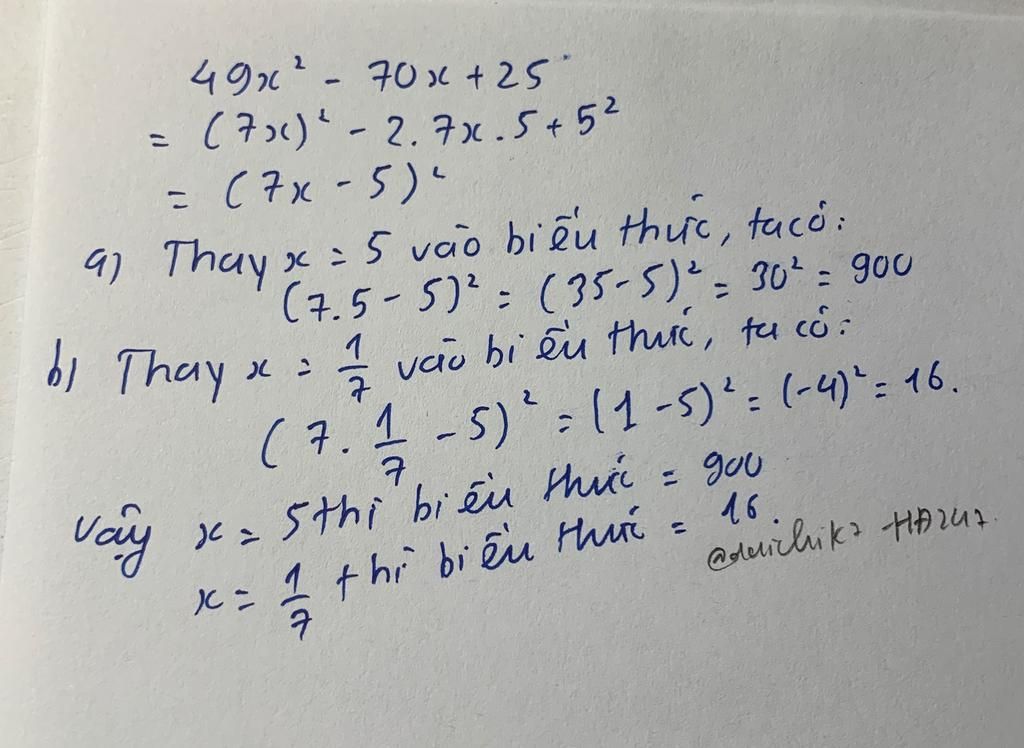 49x² - 70x + 25
= (7x)² - 2.7x.5 + 5²
= (7x - 5)²
a) Thay x = 5 vào biểu thức, ta có:
(7.5 - 5)² = (35-5)² = 30² = 900
b) Thay x = 1/7 vào biểu thức, ta có:
(7. 1/7 - 5)² = (1 - 5)² = (-4)² = 16.
Vậy x = 5 thì biểu thức = 900
x = 1/7 thì biểu thức = 16.